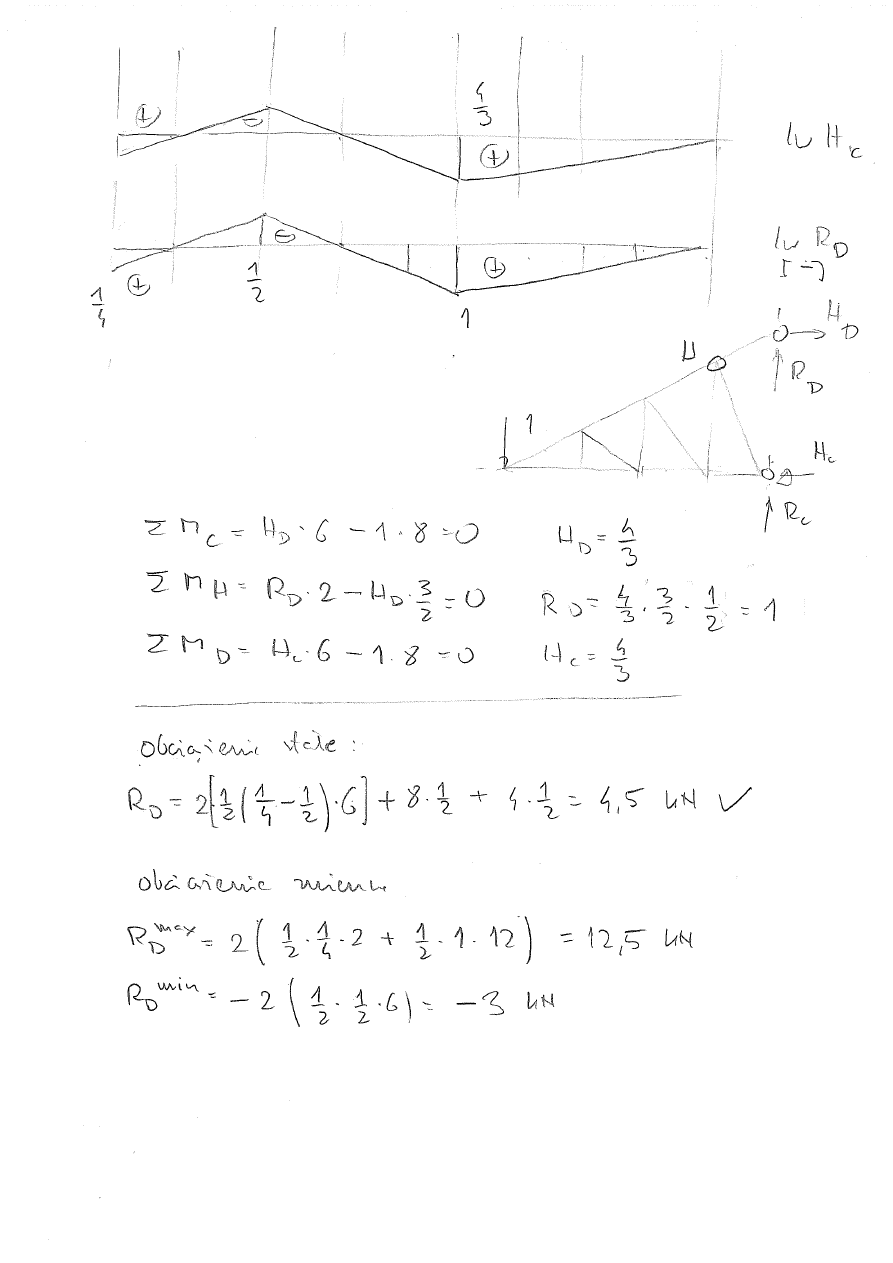 4/3
lw H_c
⊕ ⊖ ⊕
lw R_D
[-]
⊖ ⊕
1/4 ⊕ 1/2 1
H_D
H
R_D
1
H_c
R_c
Σ M_C = H_D · 6 − 1 · 8 = 0 H_D = 4/3
Σ M_H = R_D · 2 − H_D · 3/2 = 0 R_D = 4/3 · 3/2 · 1/2 = 1
Σ M_D = H_c · 6 − 1 · 8 = 0 H_c = 4/3
obciążenie stałe :
R_D = 2[1/2(1/4 − 1/2) · 6] + 8 · 1/2 + 4 · 1/2 = 4,5 kN ✓
obciążenie zmienne
R_D^max = 2 ( 1/2 · 1/4 · 2 + 1/2 · 1 · 12 ) = 12,5 kN
R_D^min = − 2 ( 1/2 · 1/2 · 6 ) = − 3 kN